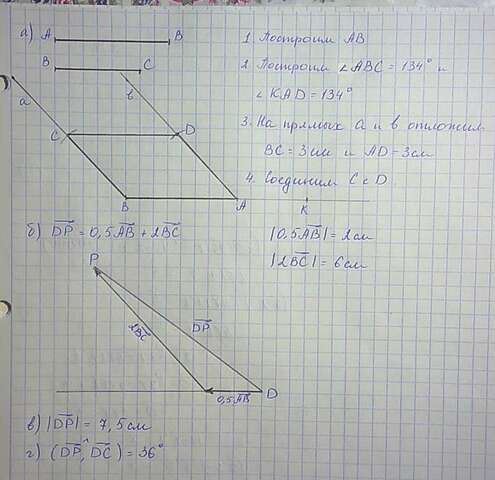 а) A B
B C
1. Построим AB
2. Построим ∠ABC = 134° и
∠KAD = 134°
3. На прямых a и b отложим
BC = 3 см и AD = 3 см
4. Соединим C с D.
a
b
C D
B A K
б) DP = 0,5AB + 2BC
|0,5AB| = 2 см
|2BC| = 6 см
P
2BC
DP
0,5AB
D
в) |DP| = 7,5 см
г) (DP, ^ DC) = 36°